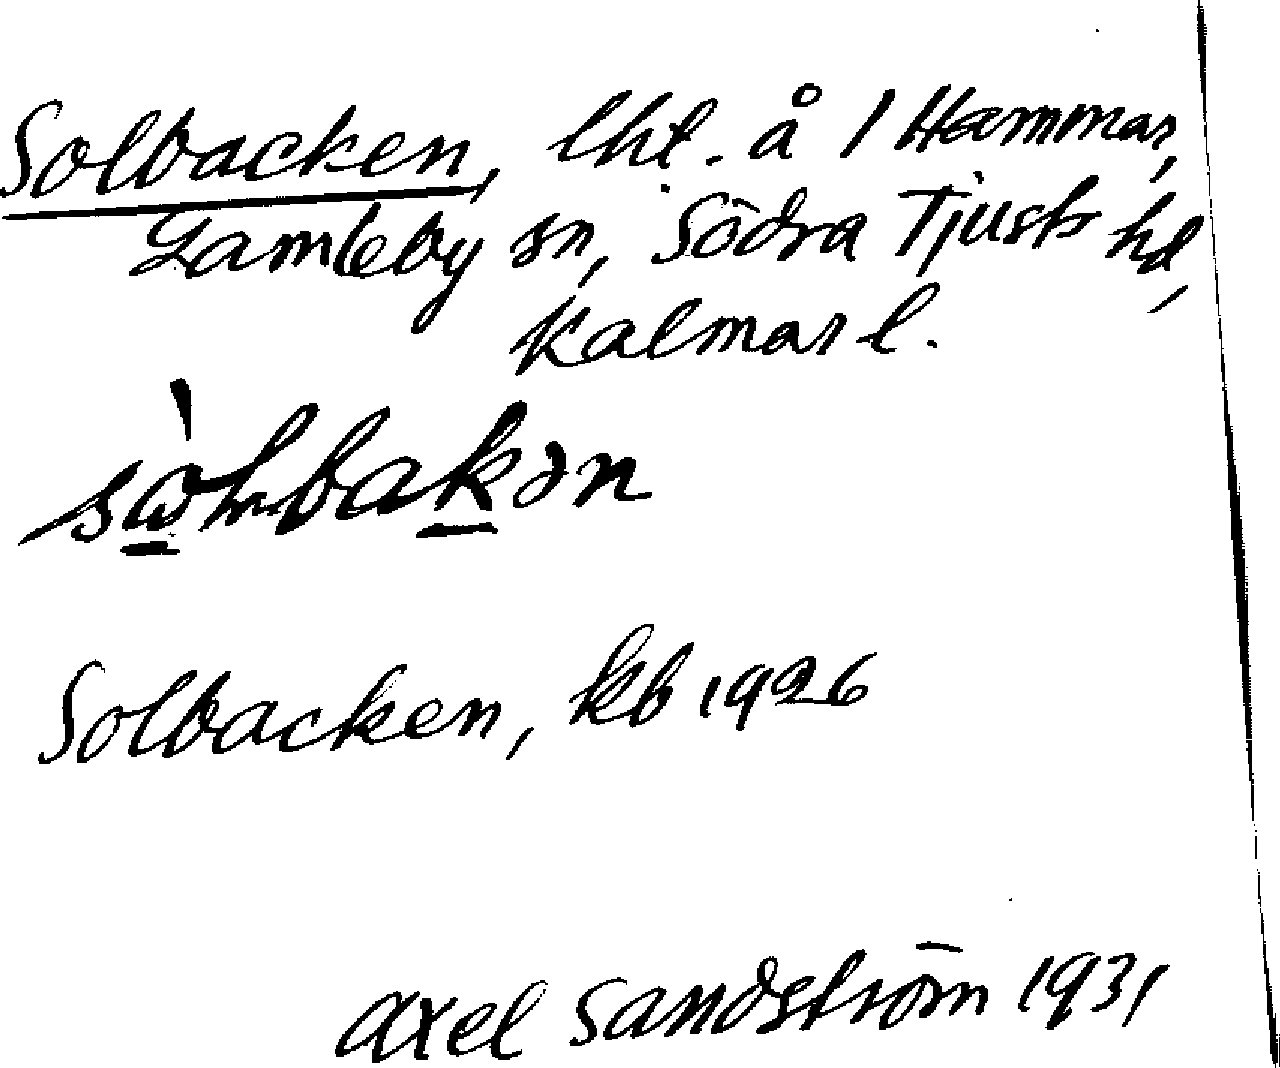 Solbacken, lht. å 1 Hammar,
Gamleby sn, Södra Tjusts hd,
Kalmar l.
Solbacken, kb 1926
Axel Sandström 1931